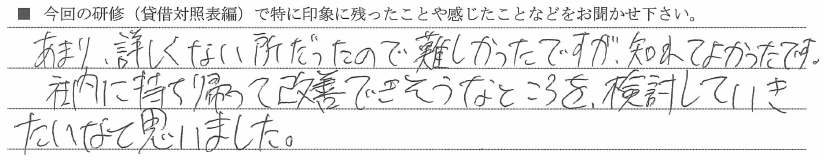 ■ 今回の研修（貸借対照表編）で特に印象に残ったことや感じたことなどをお聞かせ下さい。
あまり、詳しくない所だったので難しかったですが、知れてよかったです。
社内に持ち帰って改善できそうなところを、検討していき
たいなと思いました。